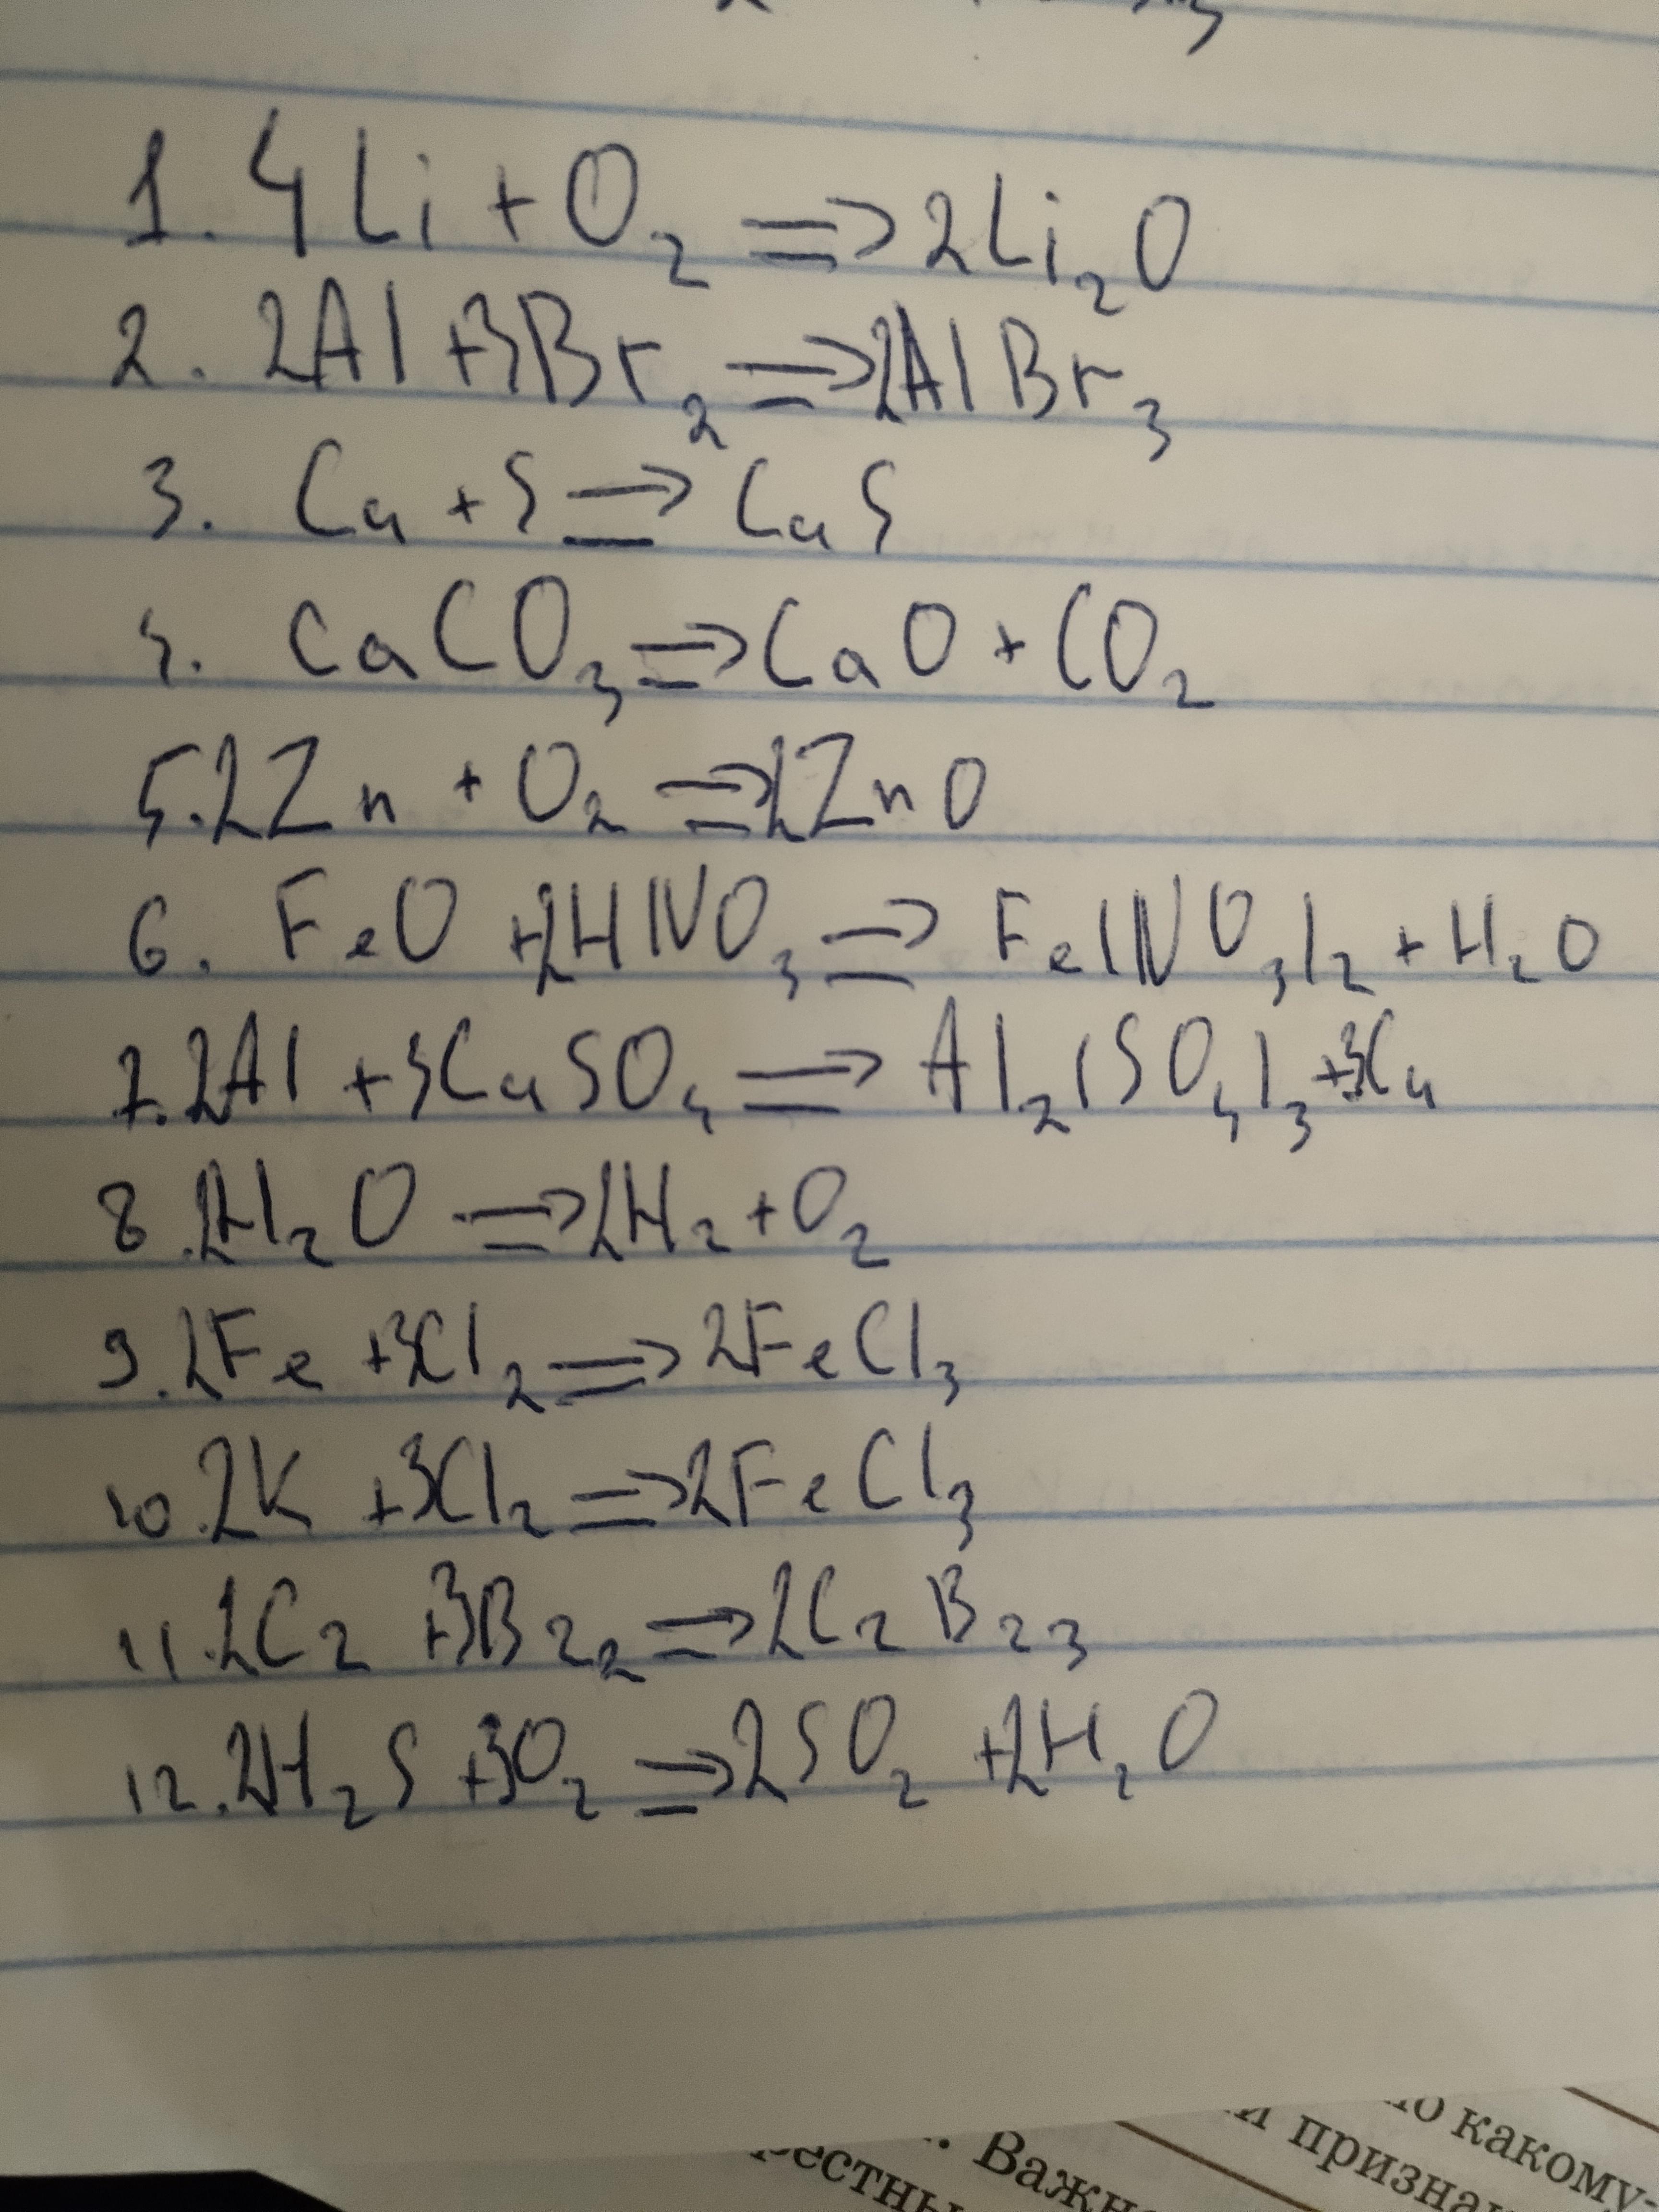 1. 4Li + O₂ ⇒ 2Li₂O
2. 2Al + 3Br₂ ⇒ 2AlBr₃
3. Cu + S ⇒ CuS
4. CaCO₃ ⇒ CaO + CO₂
5. 2Zn + O₂ ⇒ 2ZnO
6. FeO + 2HNO₃ ⇒ Fe(NO₃)₂ + H₂O
7. 2Al + 3CuSO₄ ⇒ Al₂(SO₄)₃ + 3Cu
8. 2H₂O ⇒ 2H₂ + O₂
9. 2Fe + 3Cl₂ ⇒ 2FeCl₃
10. 2K + 3Cl₂ ⇒ 2FeCl₃
11. 2C₂ + 3B₂₂ ⇒ 2C₂B₂₃
12. 2H₂S + 3O₂ ⇒ 2SO₂ + 2H₂O
какому-
и призна
Важн